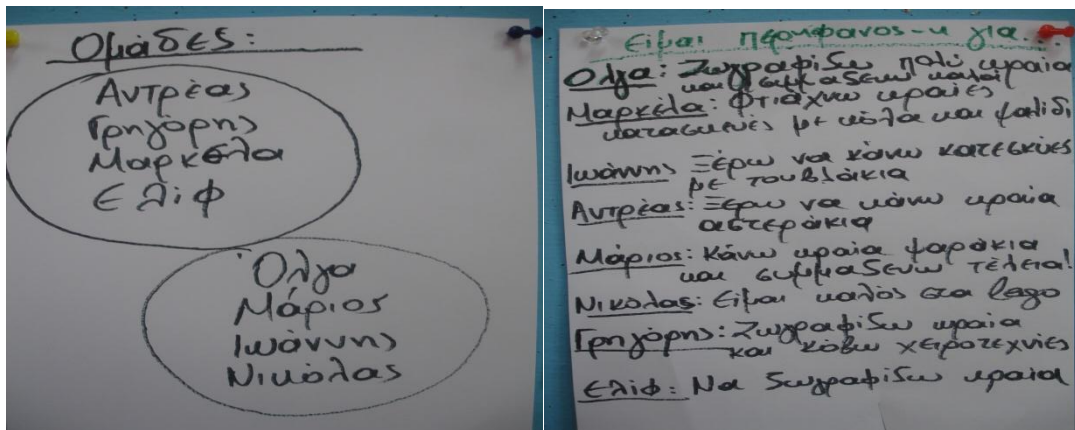 Ομάδες:
Αντρέας
Γρηγόρης
Μαρκέλα
Ελίφ
Όλγα
Μάριος
Ιωάννης
Νικόλας
Είμαι περήφανος-η για...
Όλγα: Ζωγραφίζω πολύ ωραία
και συμμαζεύω καλά
Μαρκέλα: Φτιάχνω ωραίες
κατασκευές με κόλα και ψαλίδι
Ιωάννης Ξέρω να κάνω κατεσκυές
με τουβλάκια
Αντρέας: Ξέρω να κάνω ωραία
αστεράκια
Μάριος: Κάνω ωραία ψαράκια
και συμμαζεύω τέλεια!
Νικόλας: Είμαι καλός στα lego
Γρηγόρης: Ζωγραφίζω ωραία
και κόβω χειροτεχνίες
Ελίφ: Να ζωγραφίζω ωραία